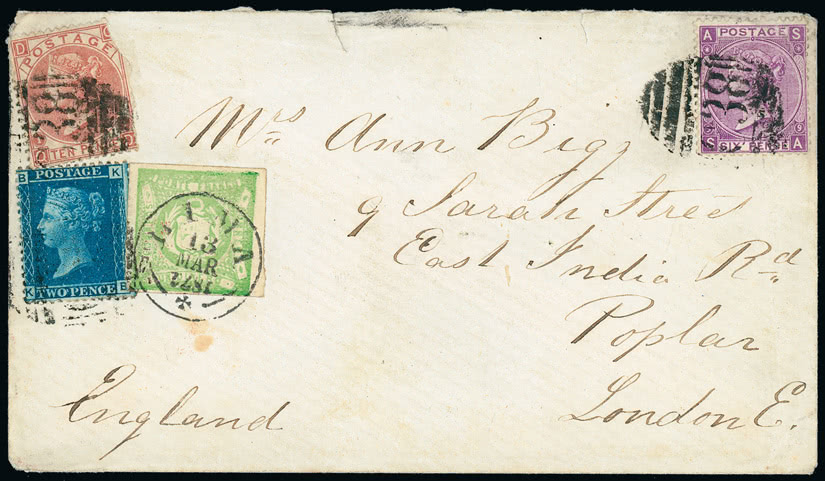 D
POSTAGE
TEN P
38
A POSTAGE S
S SIX PENCE A
38
B POSTAGE K
K TWO PENCE E
LIMA
13
MAR
1872
Mrs Ann Bigg
9 Sarah Street
East India Rd
Poplar
London E.
England